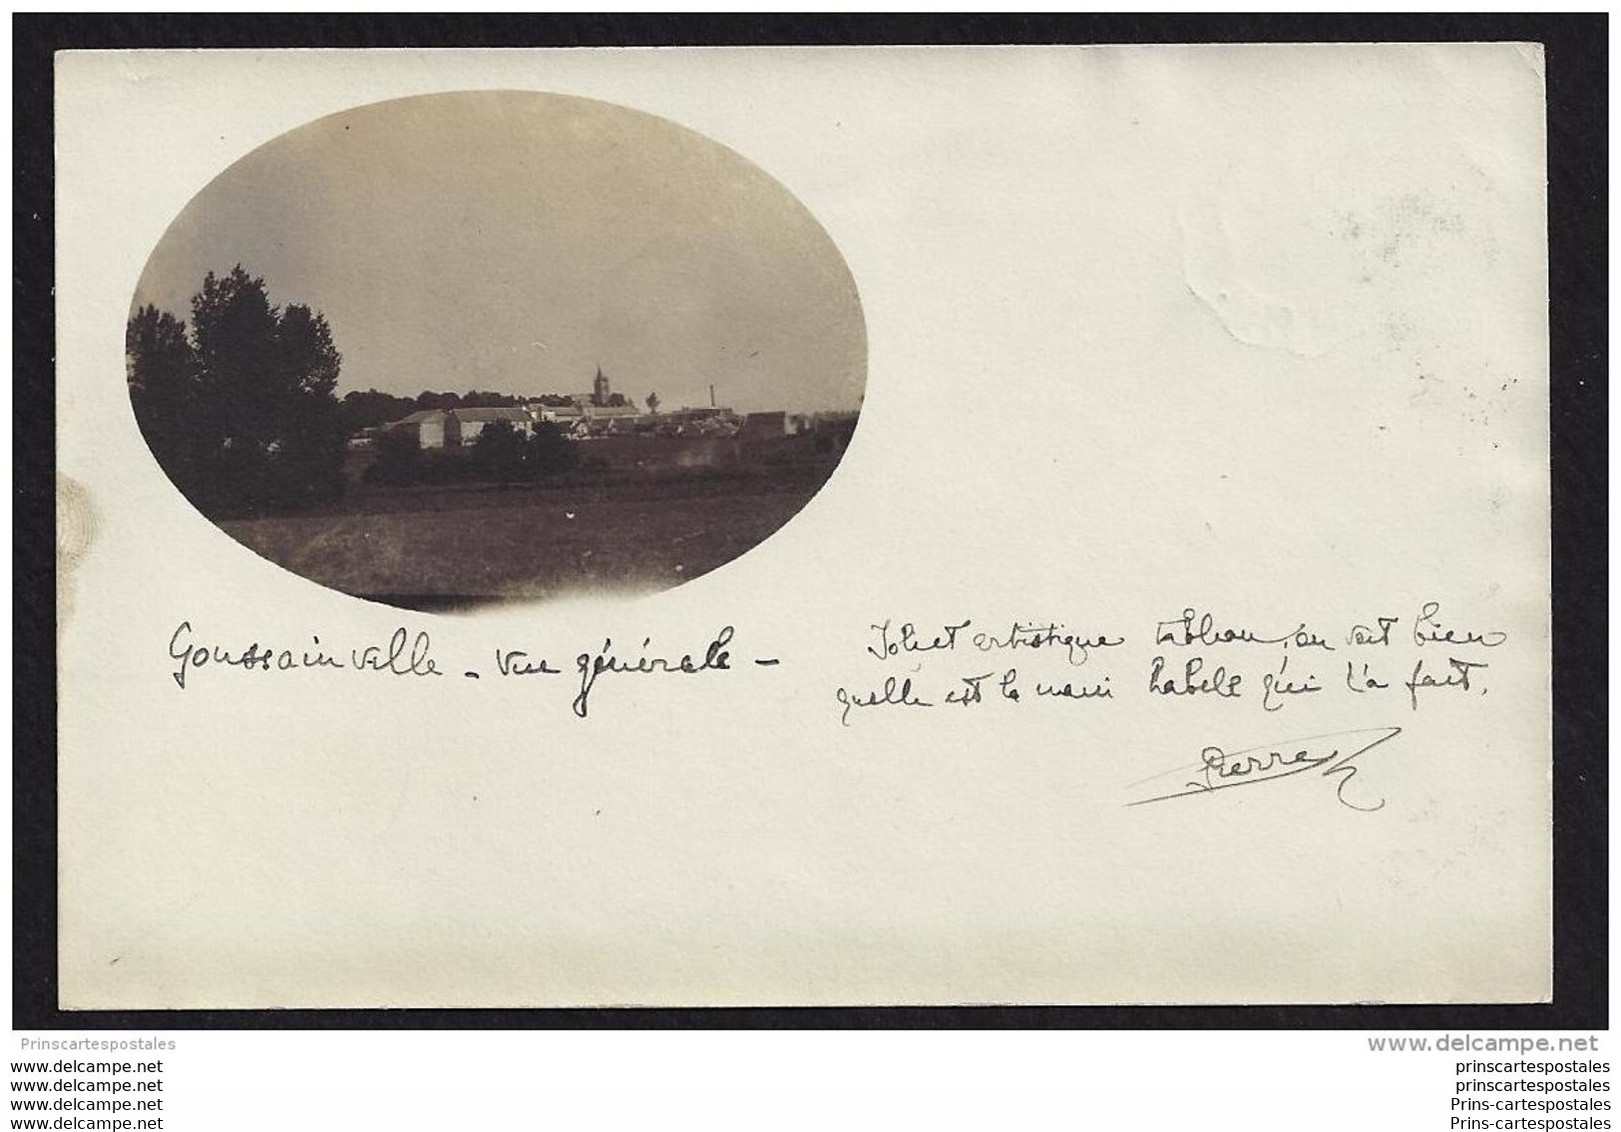 Goussainville - Vue générale -
Joli et artistique tableau, on voit bien
quelle est la main habile qui l'a fait.
Pierre
Prinscartespostales
www.delcampe.net
www.delcampe.net
www.delcampe.net
www.delcampe.net
www.delcampe.net
prinscartespostales
prinscartespostales
Prins-cartespostales
Prins-cartespostales